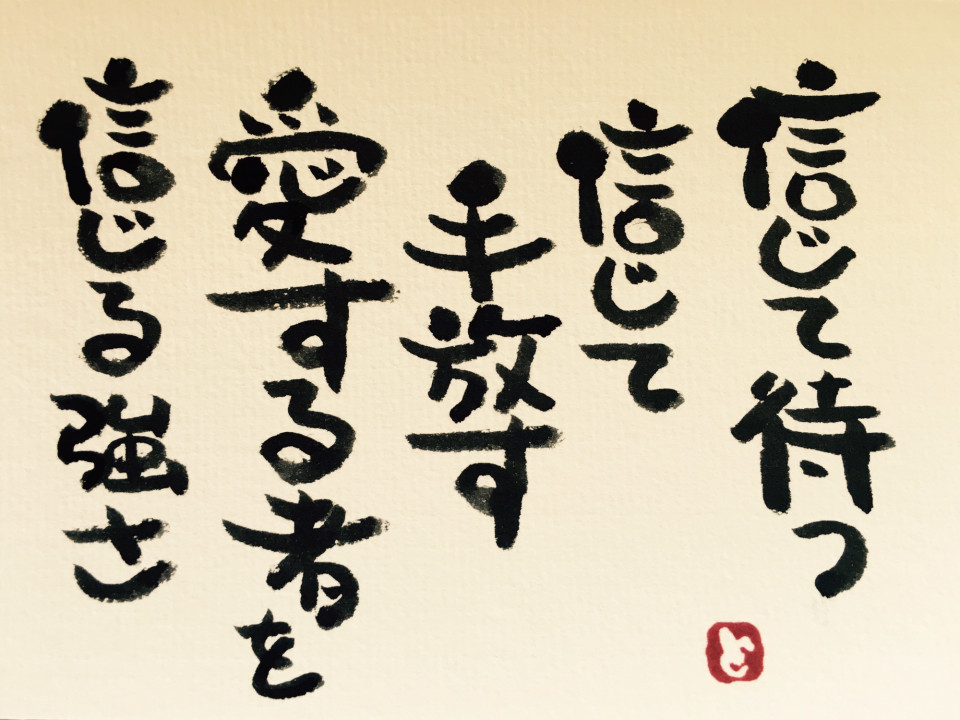 信じて待つ
信じて
手放す
愛する者を
信じる強さ
と